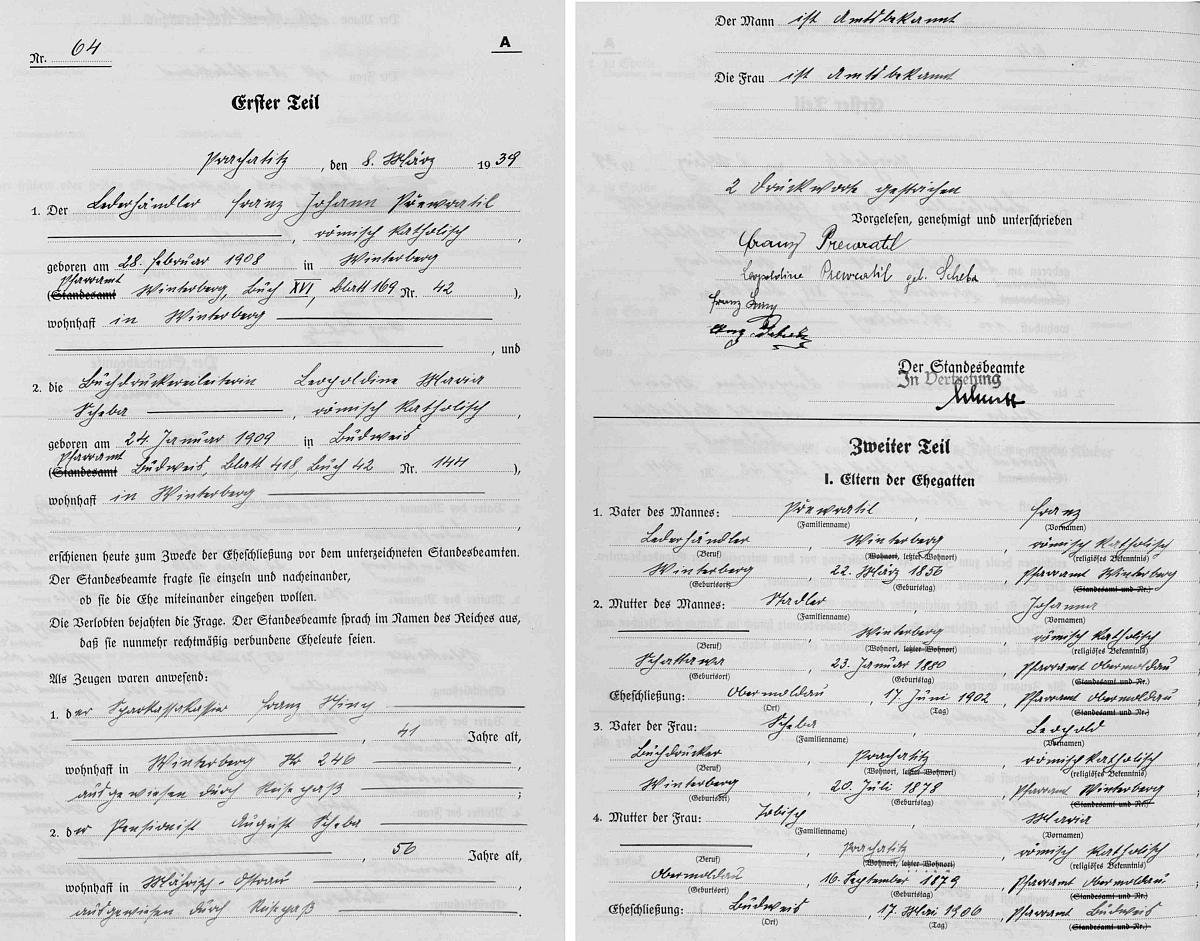 Nr. 64
A
Erster Teil
Prachatitz, den 8. März 1939
1. Der Lederhändler Franz Johann Přewratil
, römisch katholisch,
geboren am 28. Februar 1908 in Winterberg
Pfarramt
(Standesamt Winterberg, Buch XVI, Blatt 169 Nr. 42),
wohnhaft in Winterberg
, und
2. die Buchdruckereileiterin Leopoldine Maria
Scheba, römisch katholisch
geboren am 24. Januar 1909 in Budweis
Pfarramt
(Standesamt Budweis, Blatt 418, Buch 42 Nr. 144),
wohnhaft in Winterberg
,
erschienen heute zum Zwecke der Eheschließung vor dem unterzeichneten Standesbeamten.
Der Standesbeamte fragte sie einzeln und nacheinander,
ob sie die Ehe miteinander eingehen wollen.
Die Verlobten bejahten die Frage. Der Standesbeamte sprach im Namen des Reiches aus,
daß sie nunmehr rechtmäßig verbundene Eheleute seien.
Als Zeugen waren anwesend:
1. der Sparkassakassier Franz
, 41 Jahre alt,
wohnhaft in Winterberg Nr 246
ausgewiesen durch Reisepaß;
2. der Pensionist August Scheba
, 56 Jahre alt,
wohnhaft in Mährisch-Ostrau
ausgewiesen durch Reisepaß.
Der Mann ist Amtsbekannt
Die Frau ist Amtsbekannt
2 Druckworte gestrichen
Vorgelesen, genehmigt und unterschrieben
Franz Prewratil
Leopoldine Prewratil geb. Scheba
Franz
Aug. Scheba
Der Standesbeamte
In Vertretung
Zweiter Teil
I. Eltern der Ehegatten
1. Vater des Mannes: Přewratil, Franz
(Familienname) (Vornamen)
Lederhändler, Winterberg, römisch katholisch
(Beruf) (Wohnort, letzter Wohnort) (religiöses Bekenntnis)
Winterberg, 22. März 1856, Pfarramt Winterberg
(Geburtsort) (Geburtstag) (Standesamt und Nr.)
2. Mutter des Mannes: Stadler, Johanna
(Familienname) (Vornamen)
, Winterberg, römisch katholisch
(Beruf) (Wohnort, letzter Wohnort) (religiöses Bekenntnis)
Schattawa, 23. Januar 1880, Pfarramt Obermoldau
(Geburtsort) (Geburtstag) (Standesamt und Nr.)
Eheschließung: Obermoldau, 17. Juni 1902, Pfarramt Obermoldau
(Ort) (Tag) (Standesamt und Nr.)
3. Vater der Frau: Scheba, Leopold
(Familienname) (Vornamen)
Buchdrucker, Prachatitz, römisch katholisch
(Beruf) (Wohnort, letzter Wohnort) (religiöses Bekenntnis)
Winterberg, 20. Juli 1878, Pfarramt Winterberg
(Geburtsort) (Geburtstag) (Standesamt und Nr.)
4. Mutter der Frau: Tobisch, Maria
(Familienname) (Vornamen)
, Prachatitz, römisch katholisch
(Beruf) (Wohnort, letzter Wohnort) (religiöses Bekenntnis)
Obermoldau, 16. September 1879, Pfarramt Obermoldau
(Geburtsort) (Geburtstag) (Standesamt und Nr.)
Eheschließung: Budweis, 17. Mai 1906, Pfarramt Budweis
(Ort) (Tag) (Standesamt und Nr.)